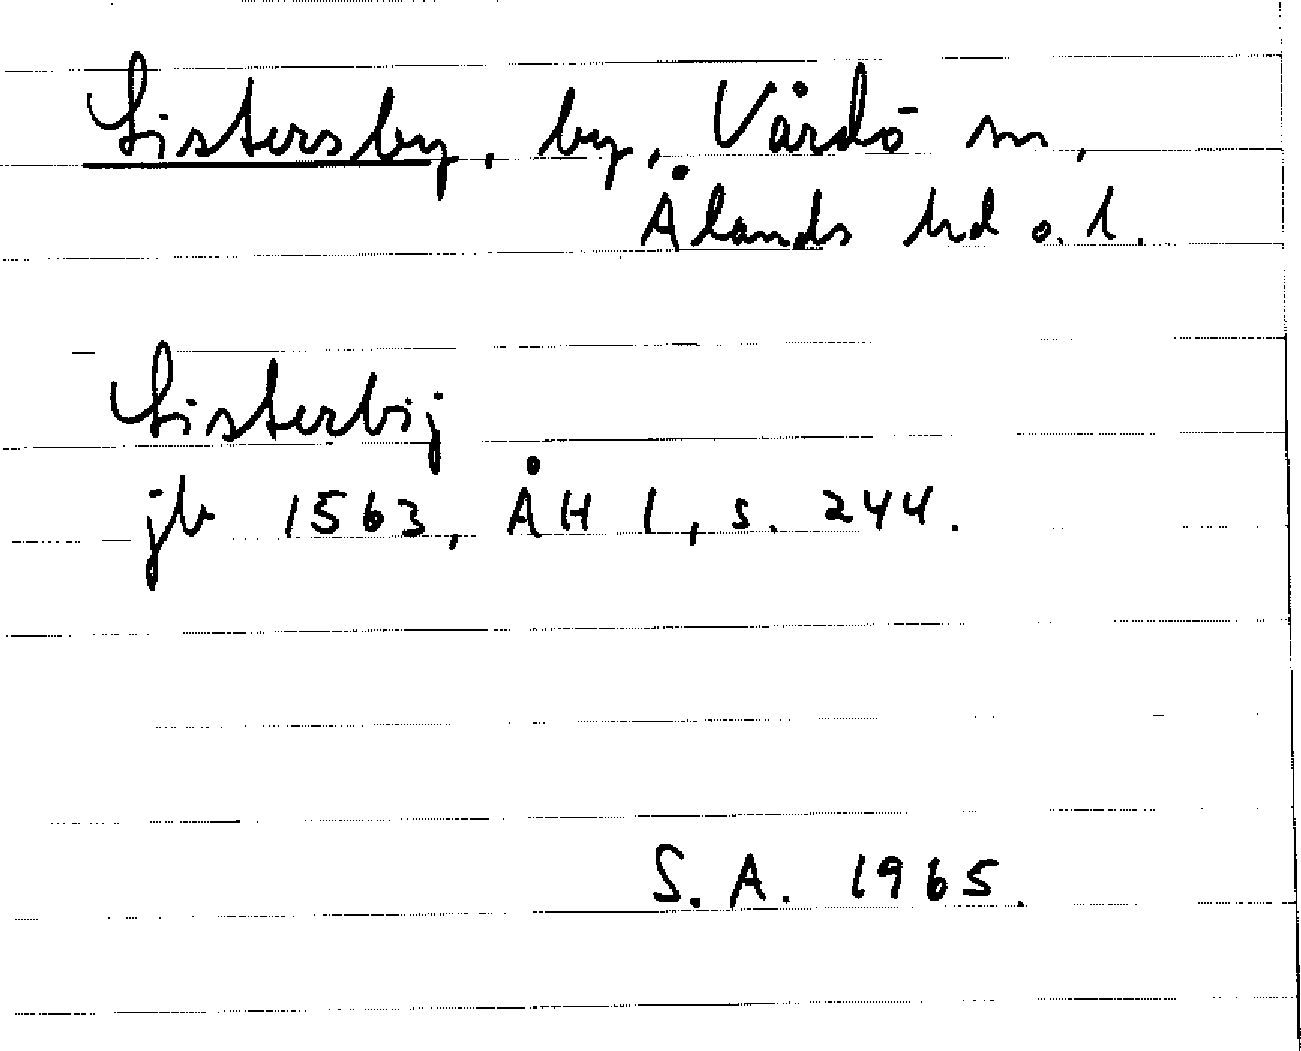 Listersby, by, Vårdö sn,
Ålands hd o. l.
Listerbij
jb 1563, ÅH I, s. 244.
S. A. 1965.